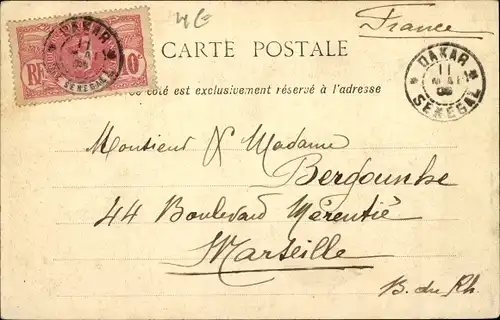 4G
France
CARTE POSTALE
Ce côté est exclusivement réservé à l'adresse
RF
10c
DAKAR
11
MAI
06
SENEGAL
DAKAR
11
MAI
06
SENEGAL
Monsieur & Madame
Bergounhe
44 Boulevard Mérentié
Marseille
B. du Rh.